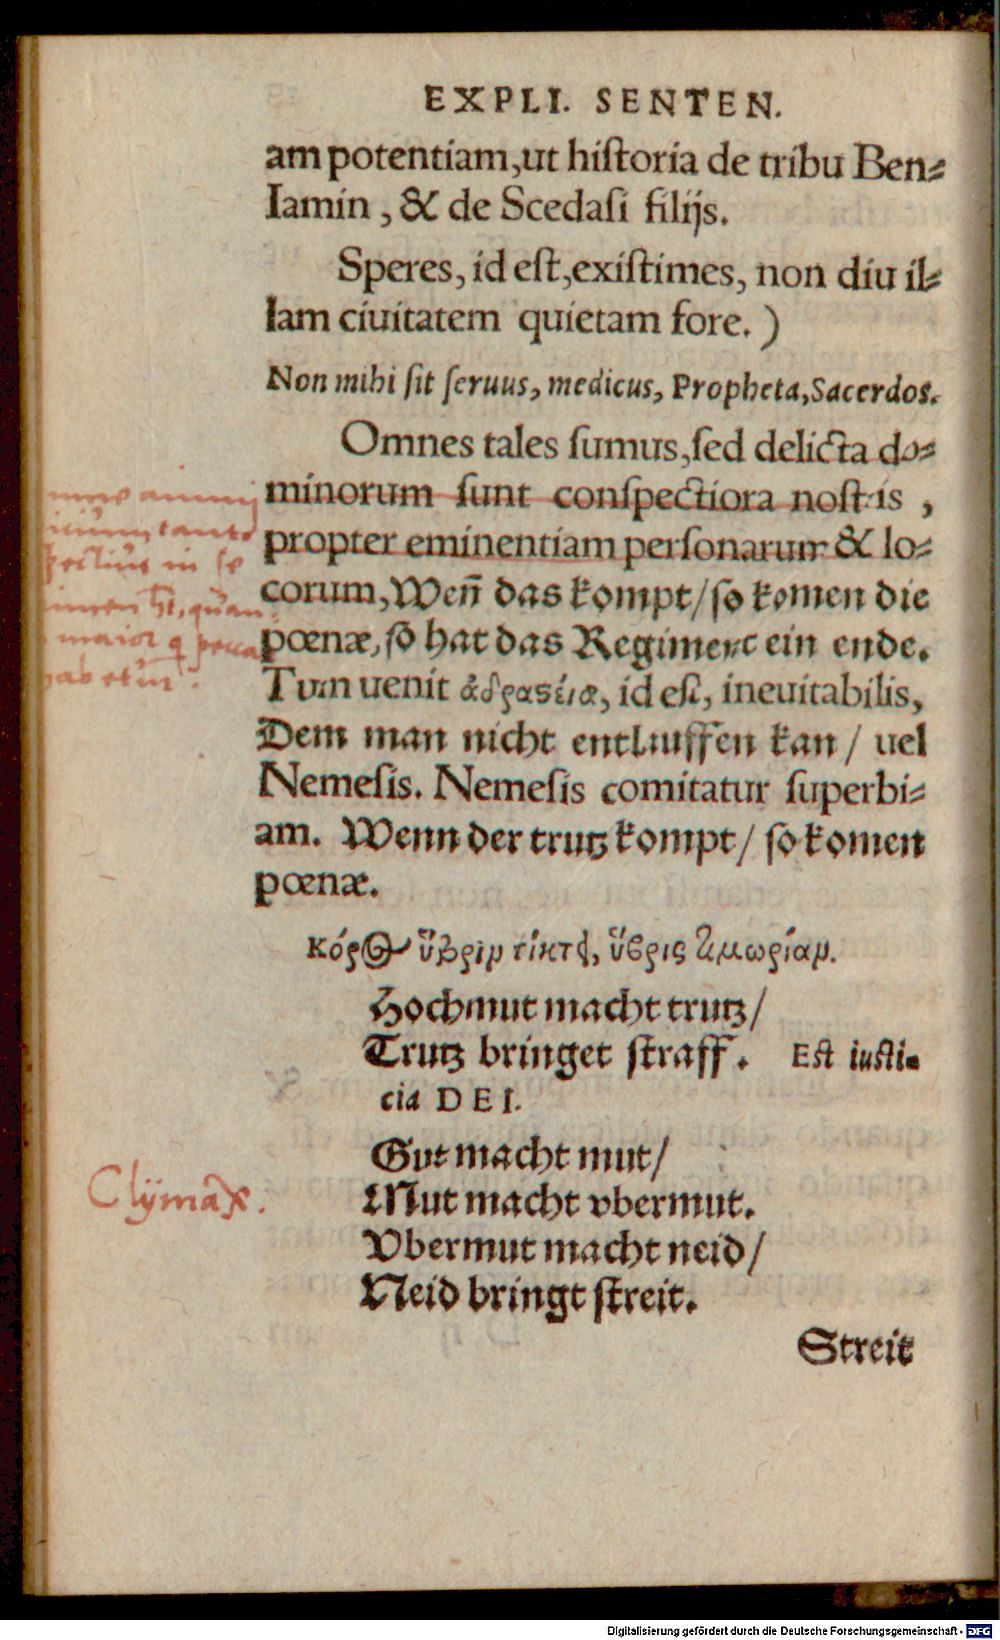 EXPLI. SENTEN.
am potentiam,ut hiſtoria de tribu Ben⸗
Iamin , & de Scedaſi filijs.
Speres, id eſt,exiſtimes, non diu il⸗
lam ciuitatem quietam fore. )
Non mihi ſit ſeruus, medicus, Propheta,Sacerdos.
Omnes tales ſumus,ſed delicta do⸗
minorum ſunt conſpectiora noſtris ,
propter eminentiam perſonarum & lo⸗
corum,Weñ das kompt/ſo komen die
pœnæ,ſo hat das Regiment ein ende.
Tum uenit ἀδραστεία, id eſt, ineuitabilis,
Dem man nicht entlauffen kan / uel
Nemeſis. Nemeſis comitatur ſuperbi⸗
am. Wenn der trutz kompt/ ſo komen
pœnæ.
Κόρος ὕβριν τίκτει, ὕβρις τιμωρίαν.
Hochmut macht trutz/
Trutz bringet ſtraff. Eſt iuſti⸗
cia DEI.
Gut macht mut/
Clÿmax.
Mut macht vbermut.
Vbermut macht neid/
Neid bringt ſtreit.
Streit
Digitalisierung gefördert durch die Deutsche Forschungsgemeinschaft - DFG